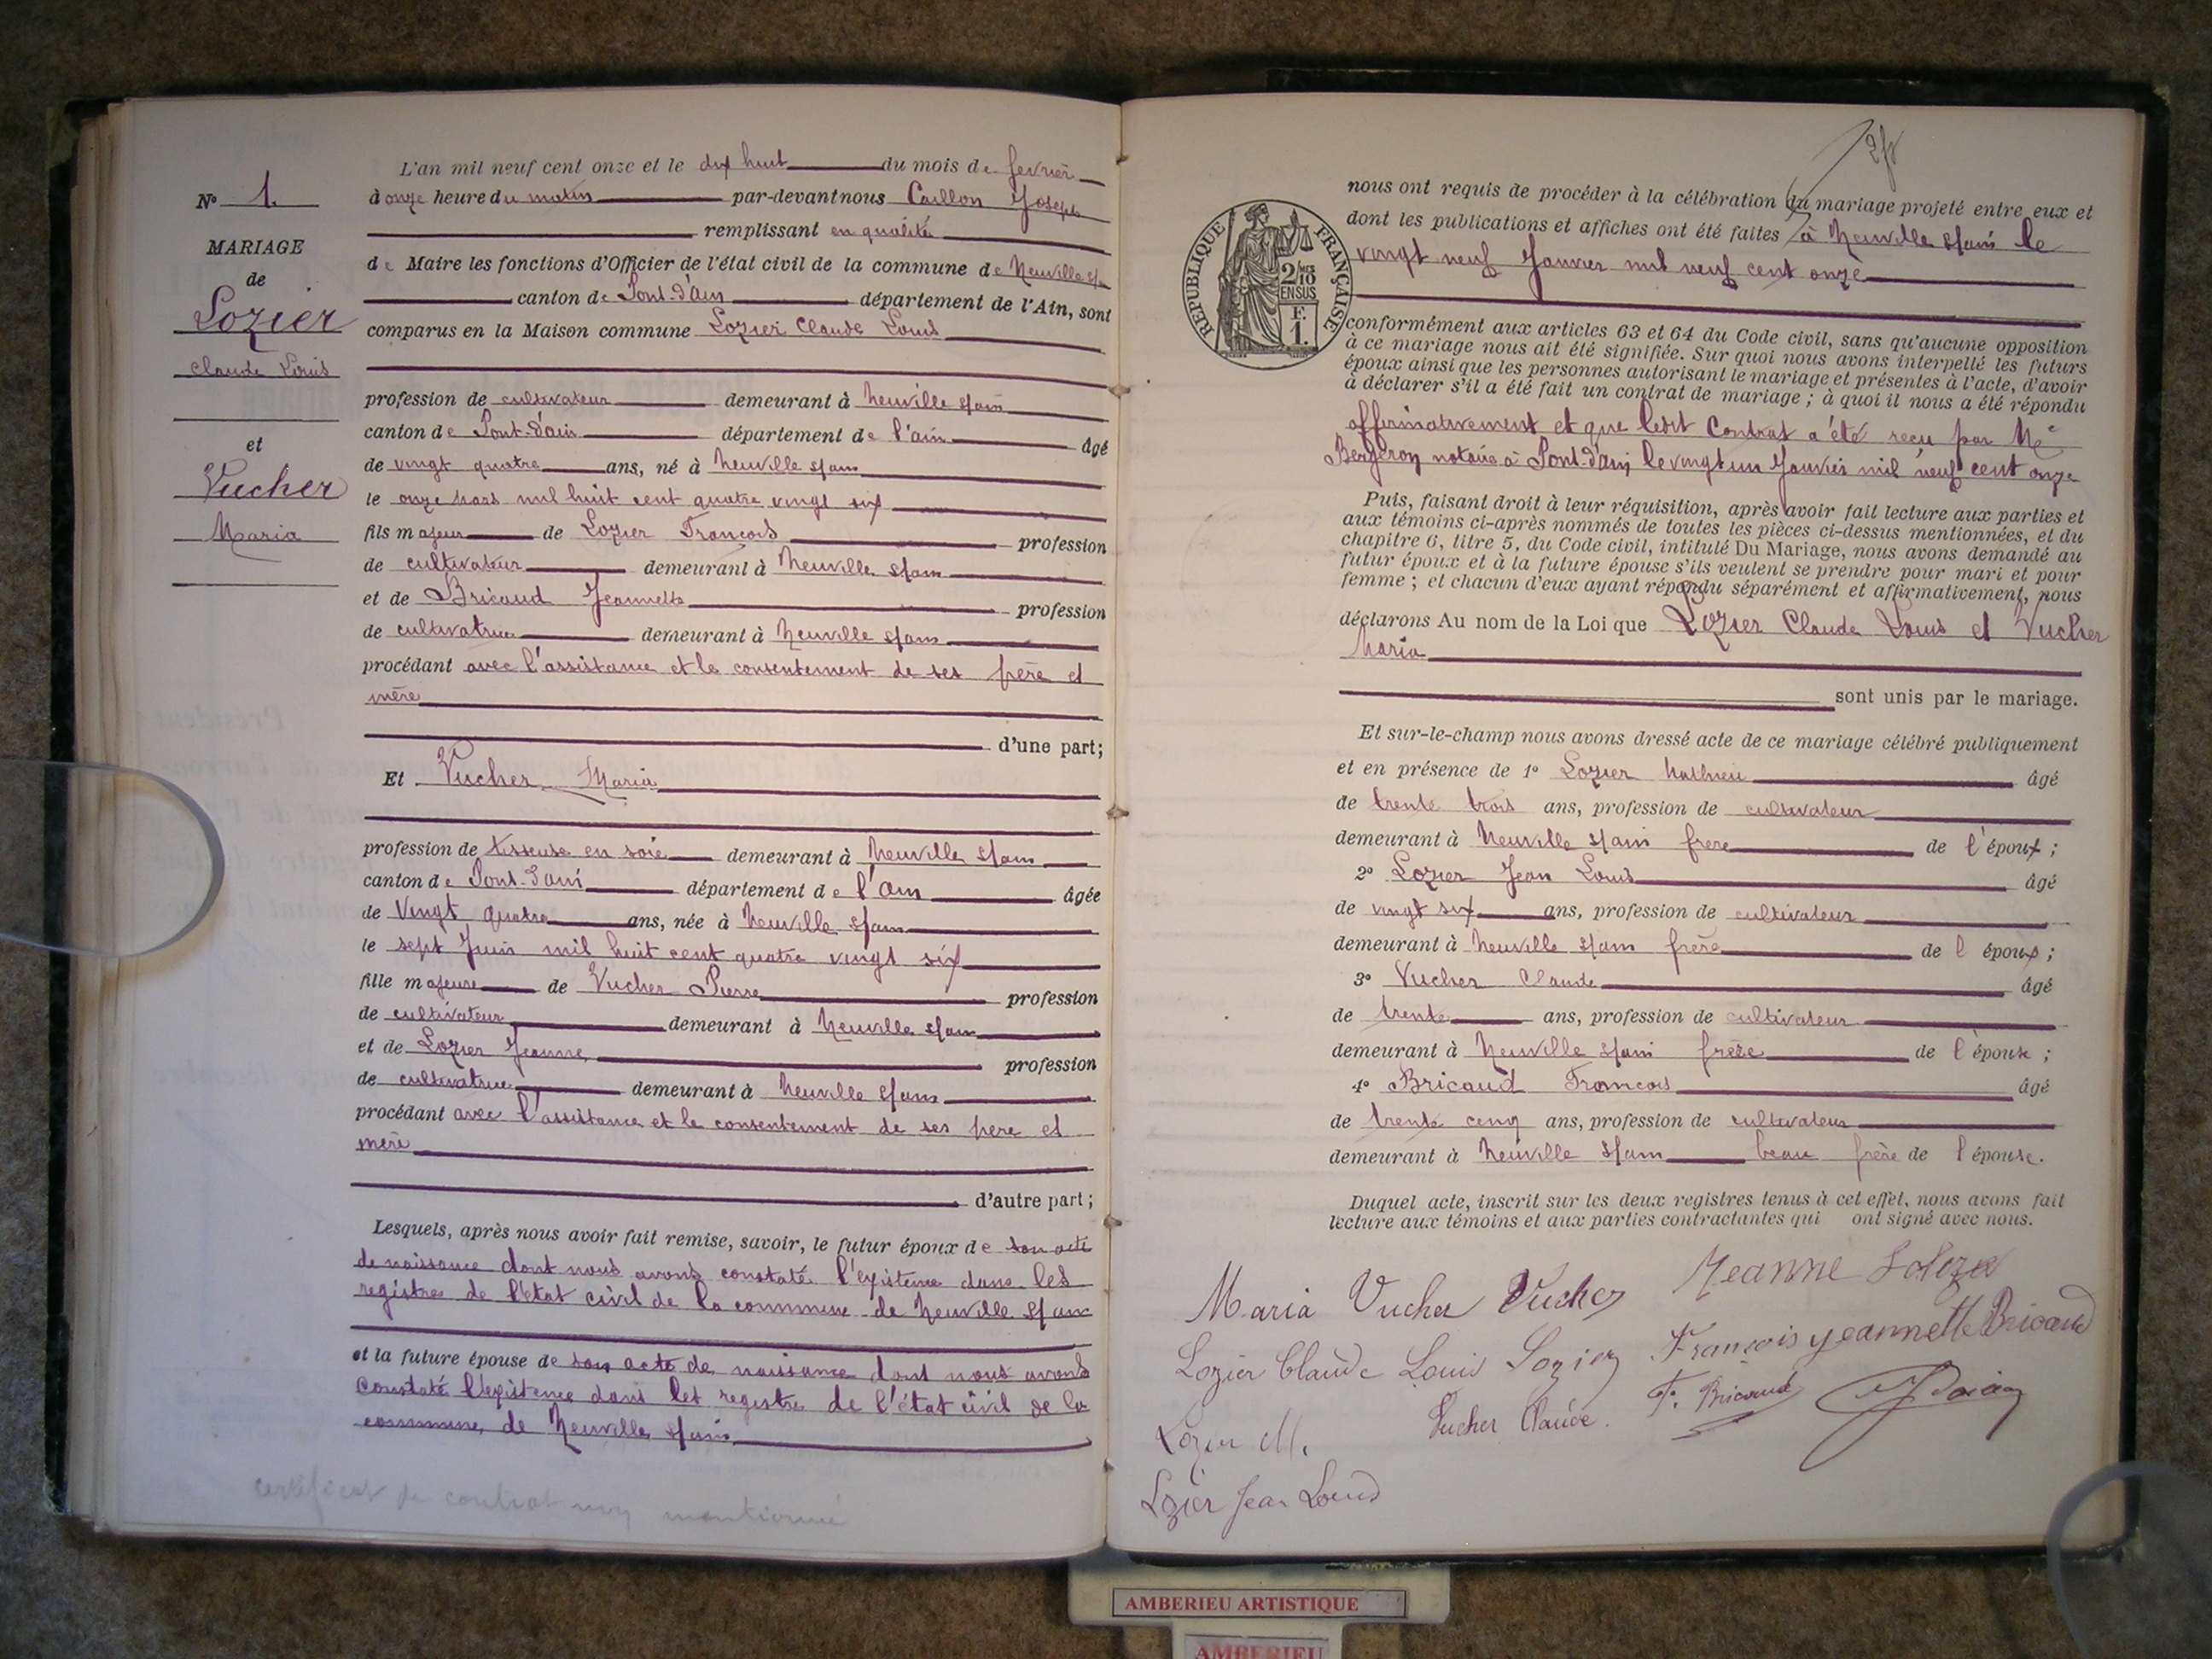 L'an mil neuf cent onze et le dix huit du mois de février
N° 1.
à onze heure du matin par-devant nous Caillon Joseph
remplissant en qualité
MARIAGE
de Maire les fonctions d'Officier de l'état civil de la commune de Neuville s/
de
canton de Pont-d'Ain département de l'Ain, sont
Lozier
comparus en la Maison commune Lozier Claude Louis
Claude Louis
profession de cultivateur demeurant à Neuville s/ain
canton de Pont-d'ain département de l'ain âgé
et
de vingt quatre ans, né à Neuville s/ain
Vucher
le onze Mars mil huit cent quatre vingt six
Maria
fils majeur de Lozier François profession
de cultivateur demeurant à Neuville s/ain
et de Bricaud Jeannette profession
de cultivatrice demeurant à Neuville s/ain
procédant avec l'assistance et le consentement de ses père et
mère
d'une part;
Et Vucher Maria
profession de tisseuse en soie demeurant à Neuville s/ain
canton de Pont-d'ain département de l'ain âgée
de Vingt quatre ans, née à Neuville s/ain
le sept Juin mil huit cent quatre vingt six
fille majeure de Vucher Pierre profession
de cultivateur demeurant à Neuville s/ain
et de Lozier Jeanne profession
de cultivatrice demeurant à Neuville s/ain
procédant avec l'assistance et le consentement de ses père et
mère
d'autre part;
Lesquels, après nous avoir fait remise, savoir, le futur époux de son acte
de naissance dont nous avons constaté l'existence dans les
registres de l'état civil de la commune de Neuville s/ain
et la future épouse de son acte de naissance dont nous avons
constaté l'existence dans les registre de l'état civil de la
commune de Neuville s/ain
certificat de contrat non mentionné
2f
RÉPUBLIQUE FRANÇAISE
2/10
EN SUS
F.
1.
nous ont requis de procéder à la célébration du mariage projeté entre eux et
dont les publications et affiches ont été faites à Neuville s/ain le
vingt neuf Janvier mil neuf cent onze
conformément aux articles 63 et 64 du Code civil, sans qu'aucune opposition
à ce mariage nous ait été signifiée. Sur quoi nous avons interpellé les futurs
époux ainsi que les personnes autorisant le mariage et présentes à l'acte, d'avoir
à déclarer s'il a été fait un contrat de mariage; à quoi il nous a été répondu
affirmativement et que ledit Contrat a été reçu par Me
Bergeron notaire à Pont-d'ain le vingt un Janvier mil neuf cent onze
Puis, faisant droit à leur réquisition, après avoir fait lecture aux parties et
aux témoins ci-après nommés de toutes les pièces ci-dessus mentionnées, et du
chapitre 6, titre 5, du Code civil, intitulé Du Mariage, nous avons demandé au
futur époux et à la future épouse s'ils veulent se prendre pour mari et pour
femme; et chacun d'eux ayant répondu séparément et affirmativement, nous
déclarons Au nom de la Loi que Lozier Claude Louis et Vucher
Maria
sont unis par le mariage.
Et sur-le-champ nous avons dressé acte de ce mariage célébré publiquement
et en présence de 1° Lozier Mathieu âgé
de trente trois ans, profession de cultivateur
demeurant à Neuville s/ain frère de l'époux;
2° Lozier Jean Louis âgé
de vingt six ans, profession de cultivateur
demeurant à Neuville s/ain frère de l époux;
3° Vucher Claude âgé
de trente ans, profession de cultivateur
demeurant à Neuville s/ain frère de l'épouse;
4° Bricaud François âgé
de trente cinq ans, profession de cultivateur
demeurant à Neuville s/ain beau frère de l'épouse.
Duquel acte, inscrit sur les deux registres tenus à cet effet, nous avons fait
lecture aux témoins et aux parties contractantes qui ont signé avec nous.
Maria Vucher Vucher Jeanne
Lozier Claude Louis Lozier François Jeannette Bricaud
Lozier M. Vucher Claude. F. Bricaud
Lozier Jean Louis
AMBERIEU ARTISTIQUE
AMBERIEU